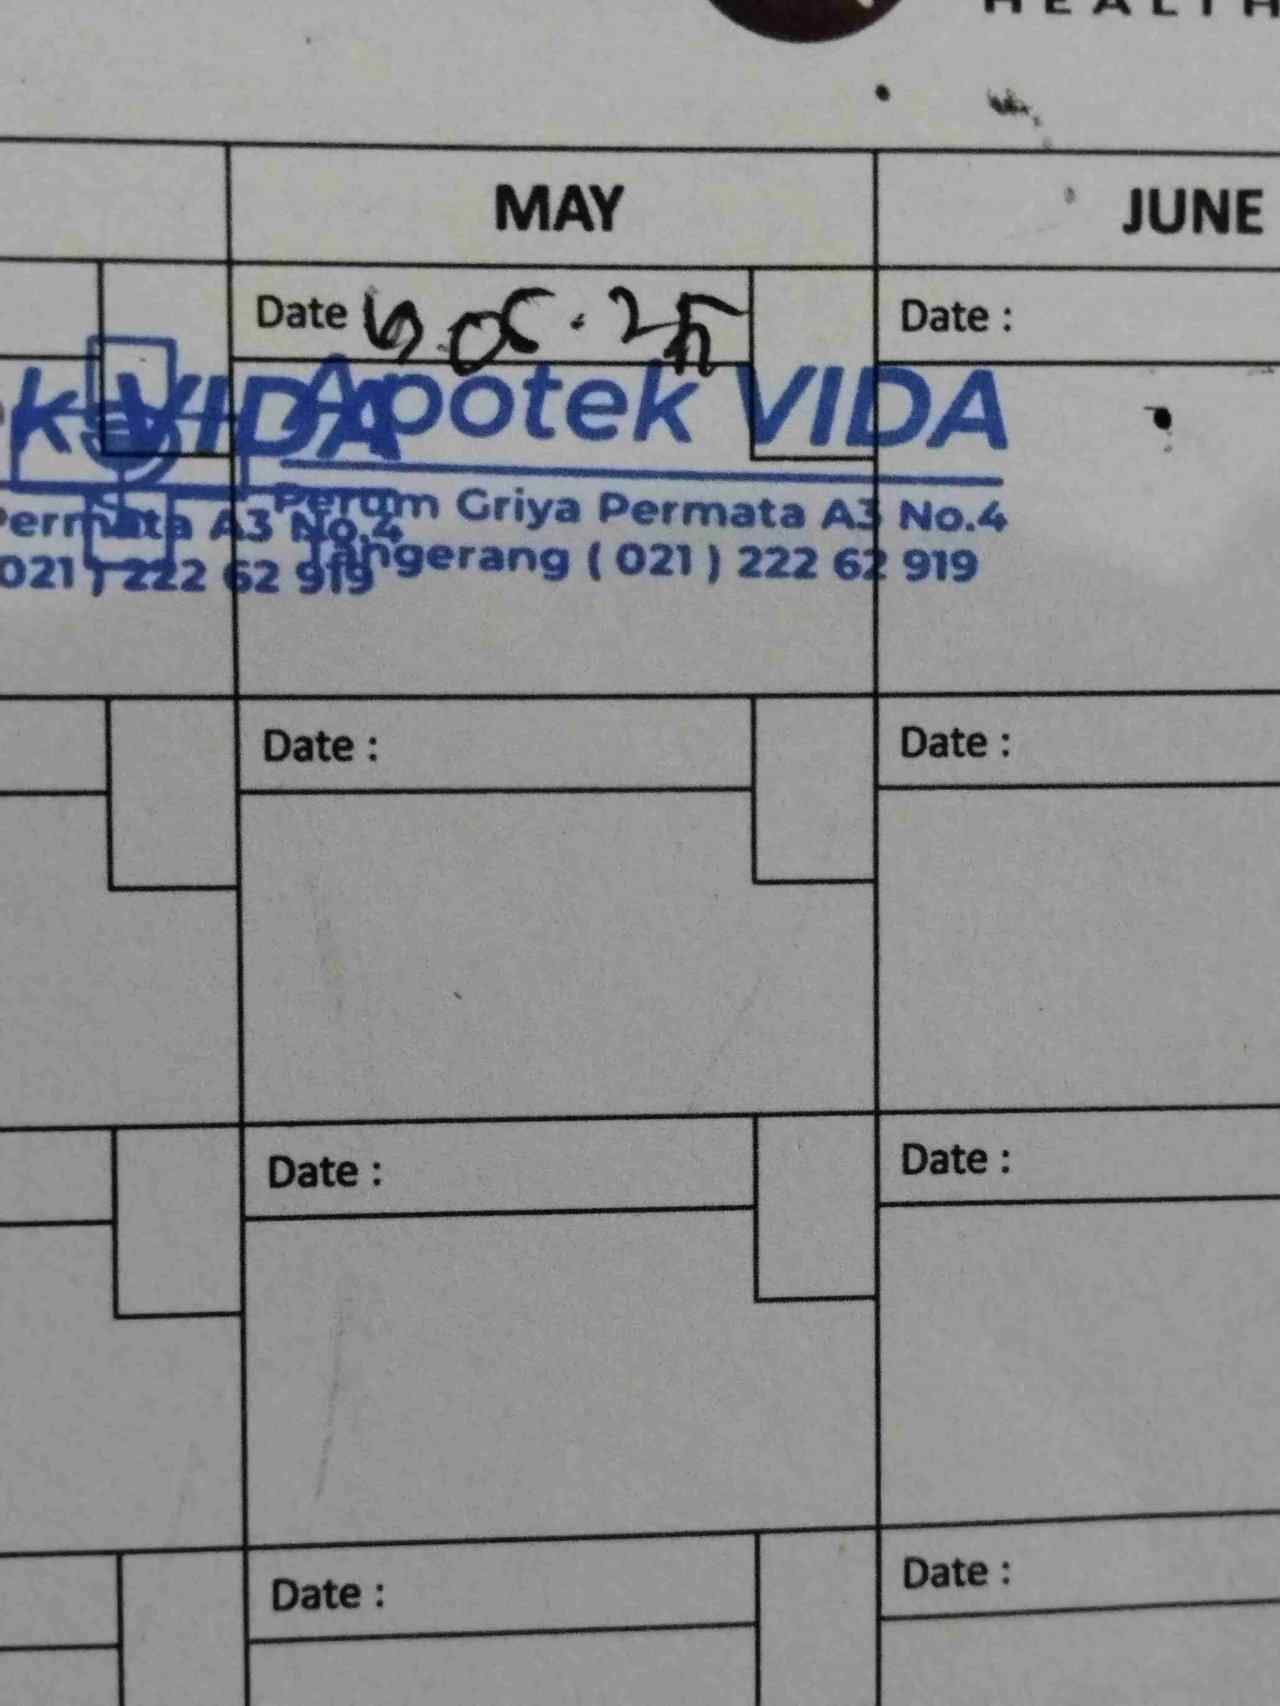 HEALTH
MAY
JUNE
Date 05.25
Date :
k VIDA
Apotek VIDA
Permata A3 No.4
Perum Griya Permata A3 No.4
021 ) 222 62 919
Tangerang ( 021 ) 222 62 919
Date :
Date :
Date :
Date :
Date :
Date :